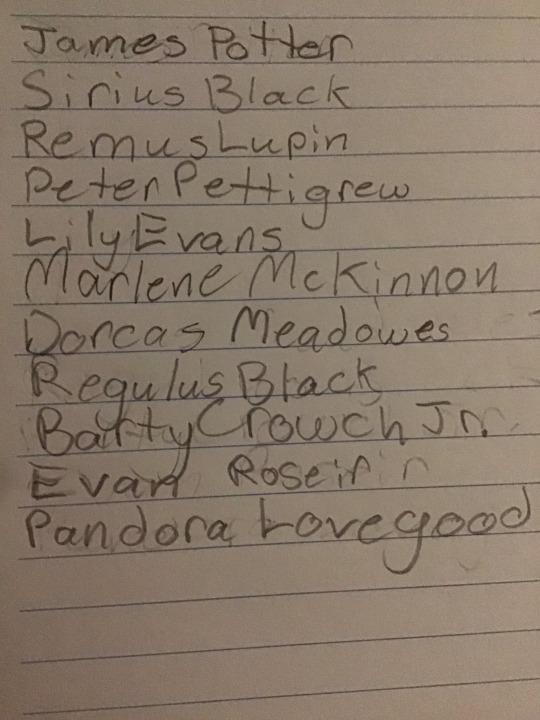 James Potter
Sirius Black
Remus Lupin
Peter Pettigrew
Lily Evans
Marlene McKinnon
Dorcas Meadowes
Regulus Black
Barty Crowch Jr.
Evan
Pandora Lovegood